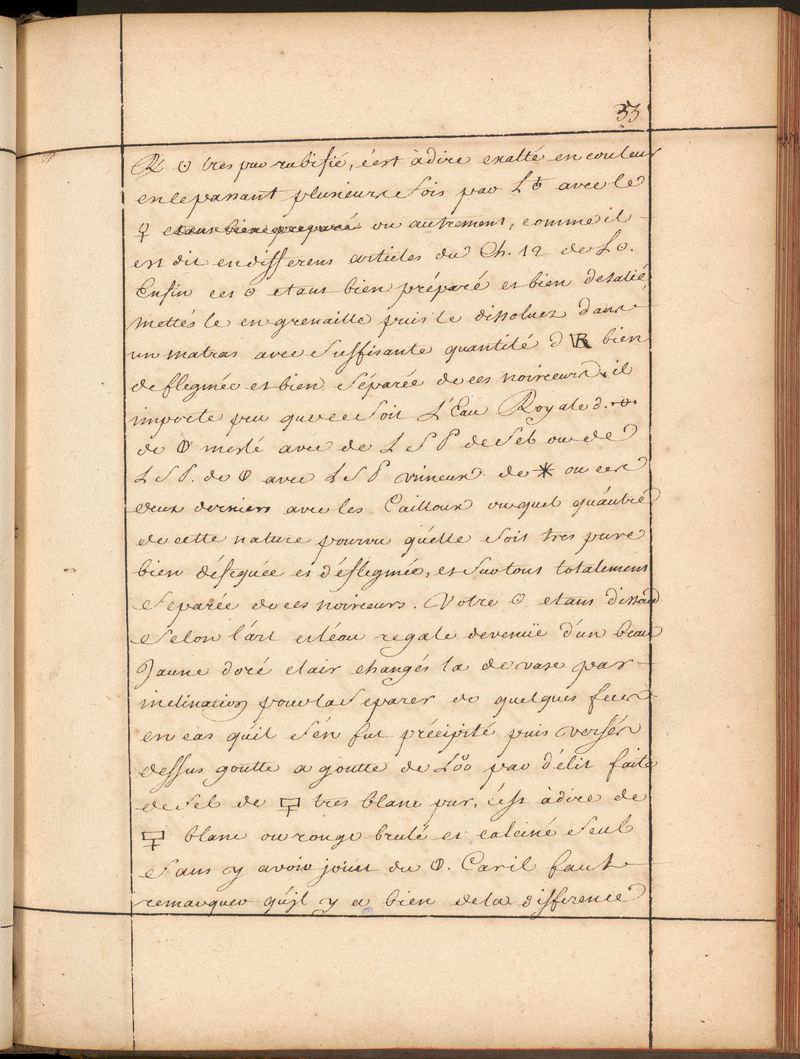 33
R ☉ tres pur rubifié, c'est àdire exalté en couleur
en le passant plusieurs fois par L♁ avec le
♀ etant bien preparé ou autrement, comme il
est dit en differens articles du Ch. 12 de L☉.
Enfin ces ☉ etant bien préparé et bien desalié,
mettés le en grenaille puis le dissoluez dans
un matras avec suffisante quantité d R bien
deflegmée et bien séparée de ces noirceurs, il
importe peu que ce soit L'Eau Royale d.
de ⦶ meslé avec de L S P de Sel ou de
L S P. de ⦶ avec L S P vineux de * ou ces
deux derniers avec les Cailloux ou quel qu'autre
de cette nature pourvu qu'elle soit tres pure
bien déféquée et déflegmée, et surtout totalement
separée de ces noirceurs. Votre ☉ etant dissoud
selon l'art et léau regale devenüe d'un beau
Jaune doré clair changés la de vase par
inclination pour la separer de quelques feces
en cas qu'il s'én fut précipité puis versés
dessus goutte a goutte de L par délit faite
de Sel de 🜿 tres blanc pur, c'est àdire de
🜿 blanc ou rouge brulé et calciné seul
sans y avoir joint du ⦶. Car il faut
remarquer qu'jl y a bien de la difference